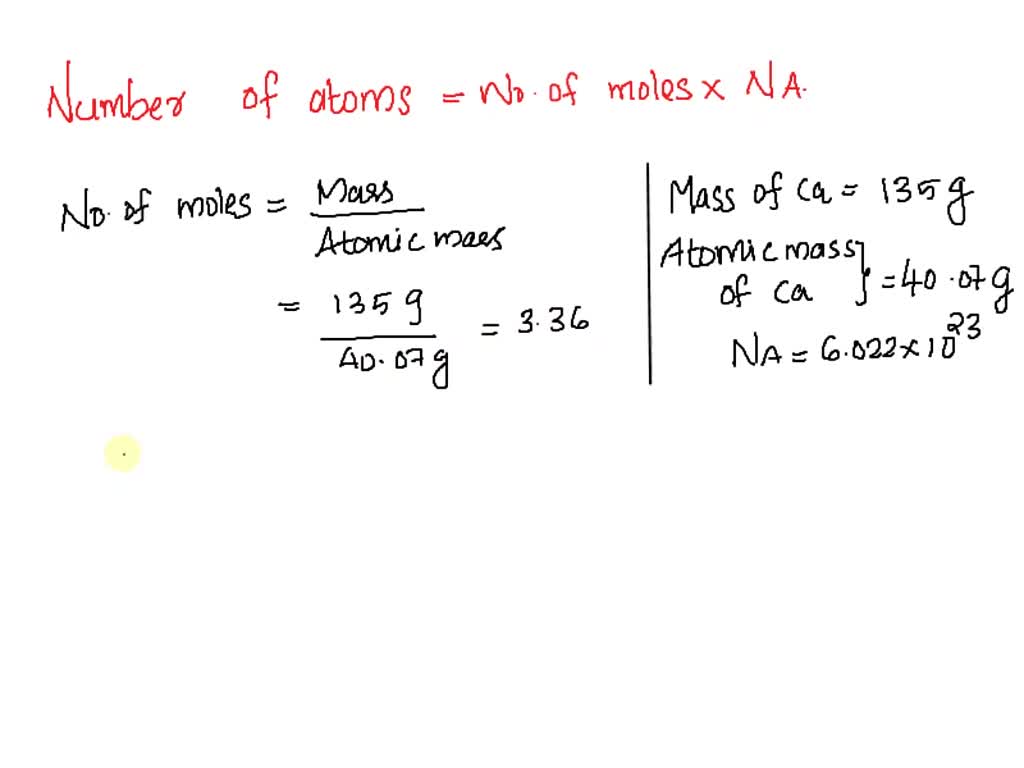 Number of atoms = No. of moles × NA.
No. of moles = Mass / Atomic maes
= 135 g / 40.07 g = 3.36
Mass of Ca = 135 g
Atomic mass
of Ca } = 40.07 g
NA = 6.022 × 10²³